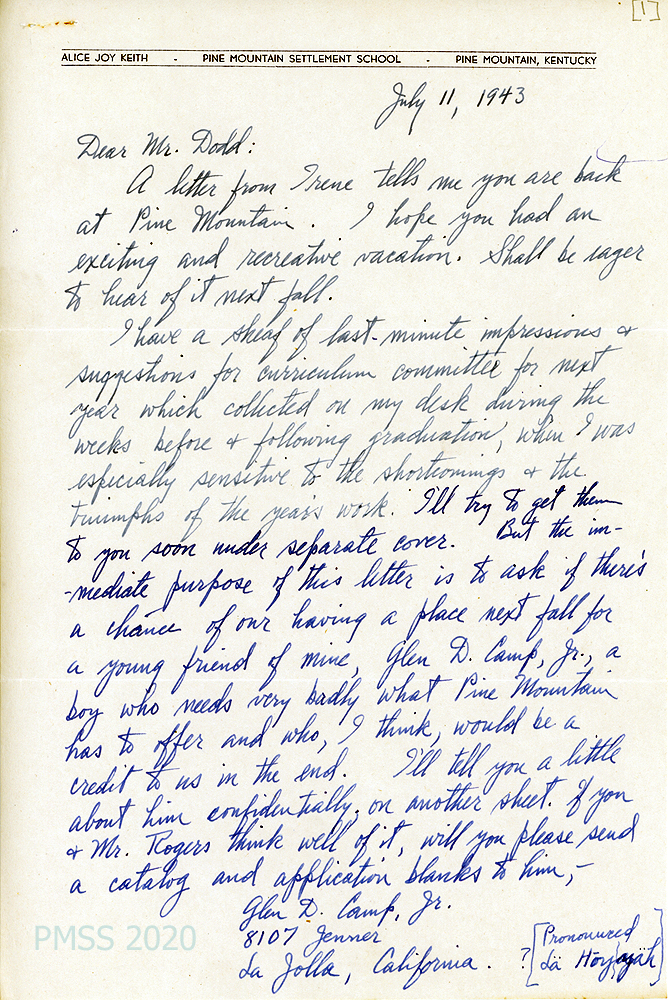 [1]
ALICE JOY KEITH - PINE MOUNTAIN SETTLEMENT SCHOOL - PINE MOUNTAIN, KENTUCKY
July 11, 1943
Dear Mr. Dodd:
A letter from Irene tells me you are back
at Pine Mountain. I hope you had an
exciting and recreative vacation. Shall be eager
to hear of it next fall.
I have a sheaf of last-minute impressions &
suggestions for curriculum committee for next
year which collected on my desk during the
weeks before & following graduation, when I was
especially sensitive to the shortcomings & the
triumphs of the year's work. I'll try to get them
to you soon under separate cover. But the im-
-mediate purpose of this letter is to ask if there's
a chance of our having a place next fall for
a young friend of mine, Glen D. Camp, Jr., a
boy who needs very badly what Pine Mountain
has to offer and who, I think, would be a
credit to us in the end. I'll tell you a little
about him confidentially, on another sheet. If you
& Mr. Rogers think well of it, will you please send
a catalog and application blanks to him,-
Glen D. Camp, Jr.
8107 Jenner
La Jolla, California. ? [Pronounced
Lä Hoy'yäh]
PMSS 2020